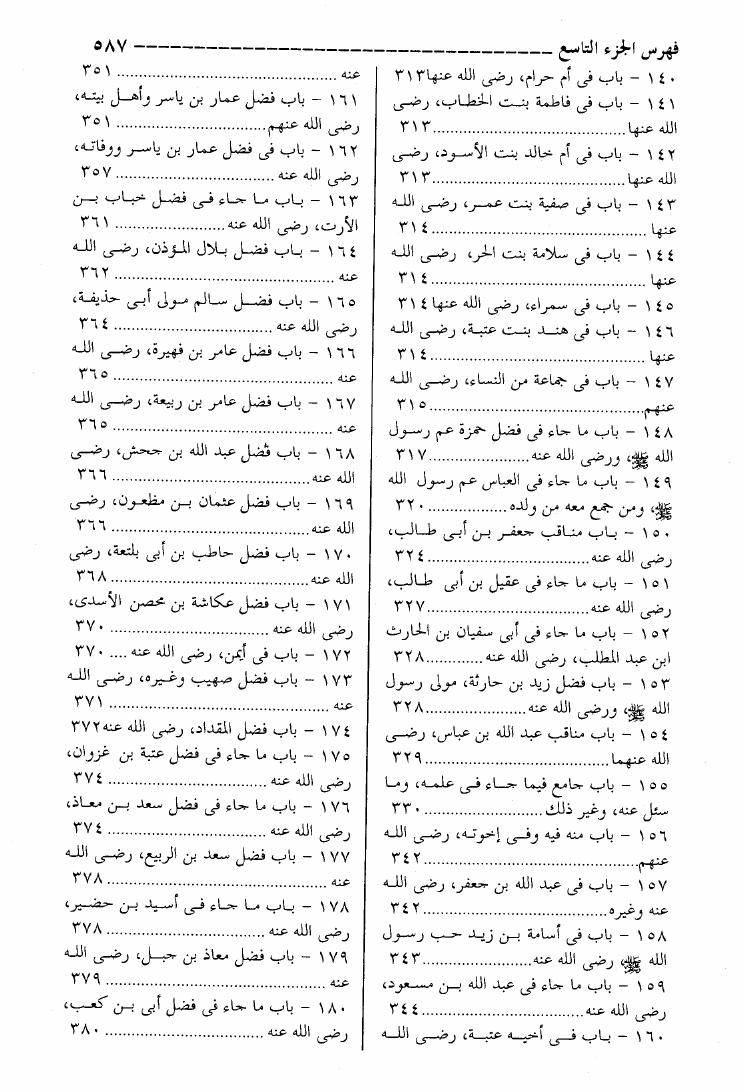 فهرس الجزء التاسع ــــــــــــــــــــــــــــــــــــــــــــــــــــ ٥٨٧
١٤٠ – باب فى أم حرام، رضى الله عنها٣١٣
١٤١ – باب فى فاطمة بنت الخطاب، رضى
الله عنها.......................................٣١٣
١٤٢ – باب فى أم خالد بنت الأسود، رضى
الله عنها.......................................٣١٣
١٤٣ – باب فى صفية بنت عمر، رضى الله
عنها............................................٣١٤
١٤٤ – باب فى سلامة بنت الحر، رضى الله
عنها............................................٣١٤
١٤٥ – باب فى سمراء، رضى الله عنها٣١٤
١٤٦ – باب فى هند بنت عتبة، رضى الله
عنها............................................٣١٤
١٤٧ – باب فى جماعة من النساء، رضى الله
عنهم............................................٣١٥
١٤٨ – باب ما جاء فى فضل حمزة عم رسول
الله ﷺ، ورضى الله عنه.....................٣١٧
١٤٩ – باب ما جاء فى العباس عم رسول الله
ﷺ، ومن جمع معه من ولده................٣٢٠
١٥٠ – باب مناقب جعفر بن أبى طالب،
رضى الله عنه..................................٣٢٤
١٥١ – باب ما جاء فى عقيل بن أبى طالب،
رضى الله عنه..................................٣٢٧
١٥٢ – باب ما جاء فى أبى سفيان بن الحارث
ابن عبد المطلب، رضى الله عنه............٣٢٨
١٥٣ – باب فضل زيد بن حارثة، مولى رسول
الله ﷺ، ورضى الله عنه.....................٣٢٨
١٥٤ – باب مناقب عبد الله بن عباس، رضى
الله عنهما......................................٣٢٩
١٥٥ – باب جامع فيما جاء فى علمه، وما
سئل عنه، وغير ذلك.........................٣٣٠
١٥٦ – باب منه فيه وفى إخوته، رضى الله
عنهم............................................٣٤٢
١٥٧ – باب فى عبد الله بن جعفر، رضى الله
عنه وغيره......................................٣٤٢
١٥٨ – باب فى أسامة بن زيد حب رسول
الله ﷺ، رضى الله عنه.......................٣٤٣
١٥٩ – باب ما جاء فى عبد الله بن مسعود،
رضى الله عنه..................................٣٤٤
١٦٠ – باب فى أخيه عتبة، رضى الله
عنه .............................................٣٥١
١٦١ – باب فضل عمار بن ياسر وأهل بيته،
رضى الله عنهم................................٣٥١
١٦٢ – باب فى فضل عمار بن ياسر ووفاته،
رضى الله عنه .................................٣٥٧
١٦٣ – باب ما جاء فى فضل خباب بن
الأرت، رضى الله عنه........................٣٦١
١٦٤ – باب فضل بلال المؤذن، رضى الله
عنه .............................................٣٦٢
١٦٥ – باب فضل سالم مولى أبى حذيفة،
رضى الله عنه .................................٣٦٤
١٦٦ – باب فضل عامر بن فهيرة، رضى الله
عنه .............................................٣٦٥
١٦٧ – باب فضل عامر بن ربيعة، رضى الله
عنه .............................................٣٦٥
١٦٨ – باب فضل عبد الله بن جحش، رضى
الله عنه.........................................٣٦٦
١٦٩ – باب فضل عثمان بن مظعون، رضى
الله عنه.........................................٣٦٦
١٧٠ – باب فضل حاطب بن أبى بلتعة، رضى
الله عنه.........................................٣٦٨
١٧١ – باب فضل عكاشة بن محصن الأسدى،
رضى الله عنه .................................٣٧٠
١٧٢ – باب فى أيمن، رضى الله عنه .... ٣٧٠
١٧٣ – باب فضل صهيب وغيره، رضى الله
عنه .............................................٣٧١
١٧٤ – باب فضل المقداد، رضى الله عنه٣٧٢
١٧٥ – باب ما جاء فى فضل عتبة بن غزوان،
رضى الله عنه .................................٣٧٤
١٧٦ – باب ما جاء فى فضل سعد بن معاذ،
رضى الله عنه .................................٣٧٤
١٧٧ – باب فضل سعد بن الربيع، رضى الله
عنه .............................................٣٧٨
١٧٨ – باب ما جاء فى أسيد بن حضير،
رضى الله عنه .................................٣٧٨
١٧٩ – باب فضل معاذ بن جبل، رضى الله
عنه .............................................٣٧٩
١٨٠ – باب ما جاء فى فضل أبى بن كعب،
رضى الله عنه .................................٣٨٠